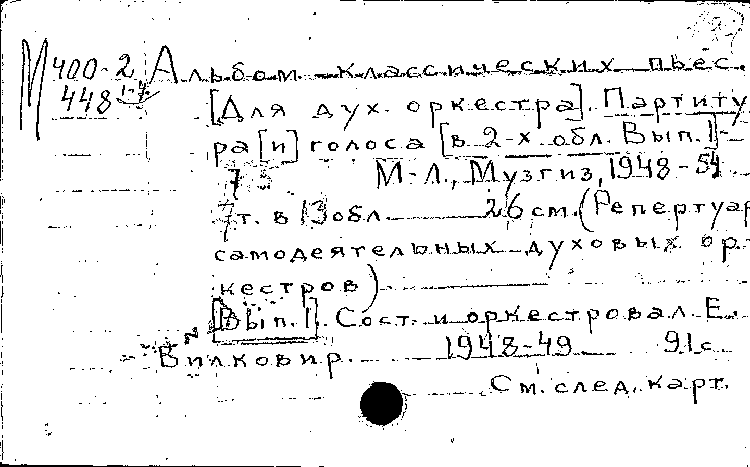 М 400-2 Альбом классических пьес.
448 1-7 [Для дух. оркестра]. Партиту
ра [и] голоса [в 2-х обл. Вып. 1]-
7 М-Л., Музгиз, 1948-54.
7т. в 13 обл. 26 см. (Репертуар
самодеятельных духовых ор-
кестров)
[Вып. 1]. Сост. и оркестровал Е.
Вилковир. 1948-49 91с
См. след. карт.